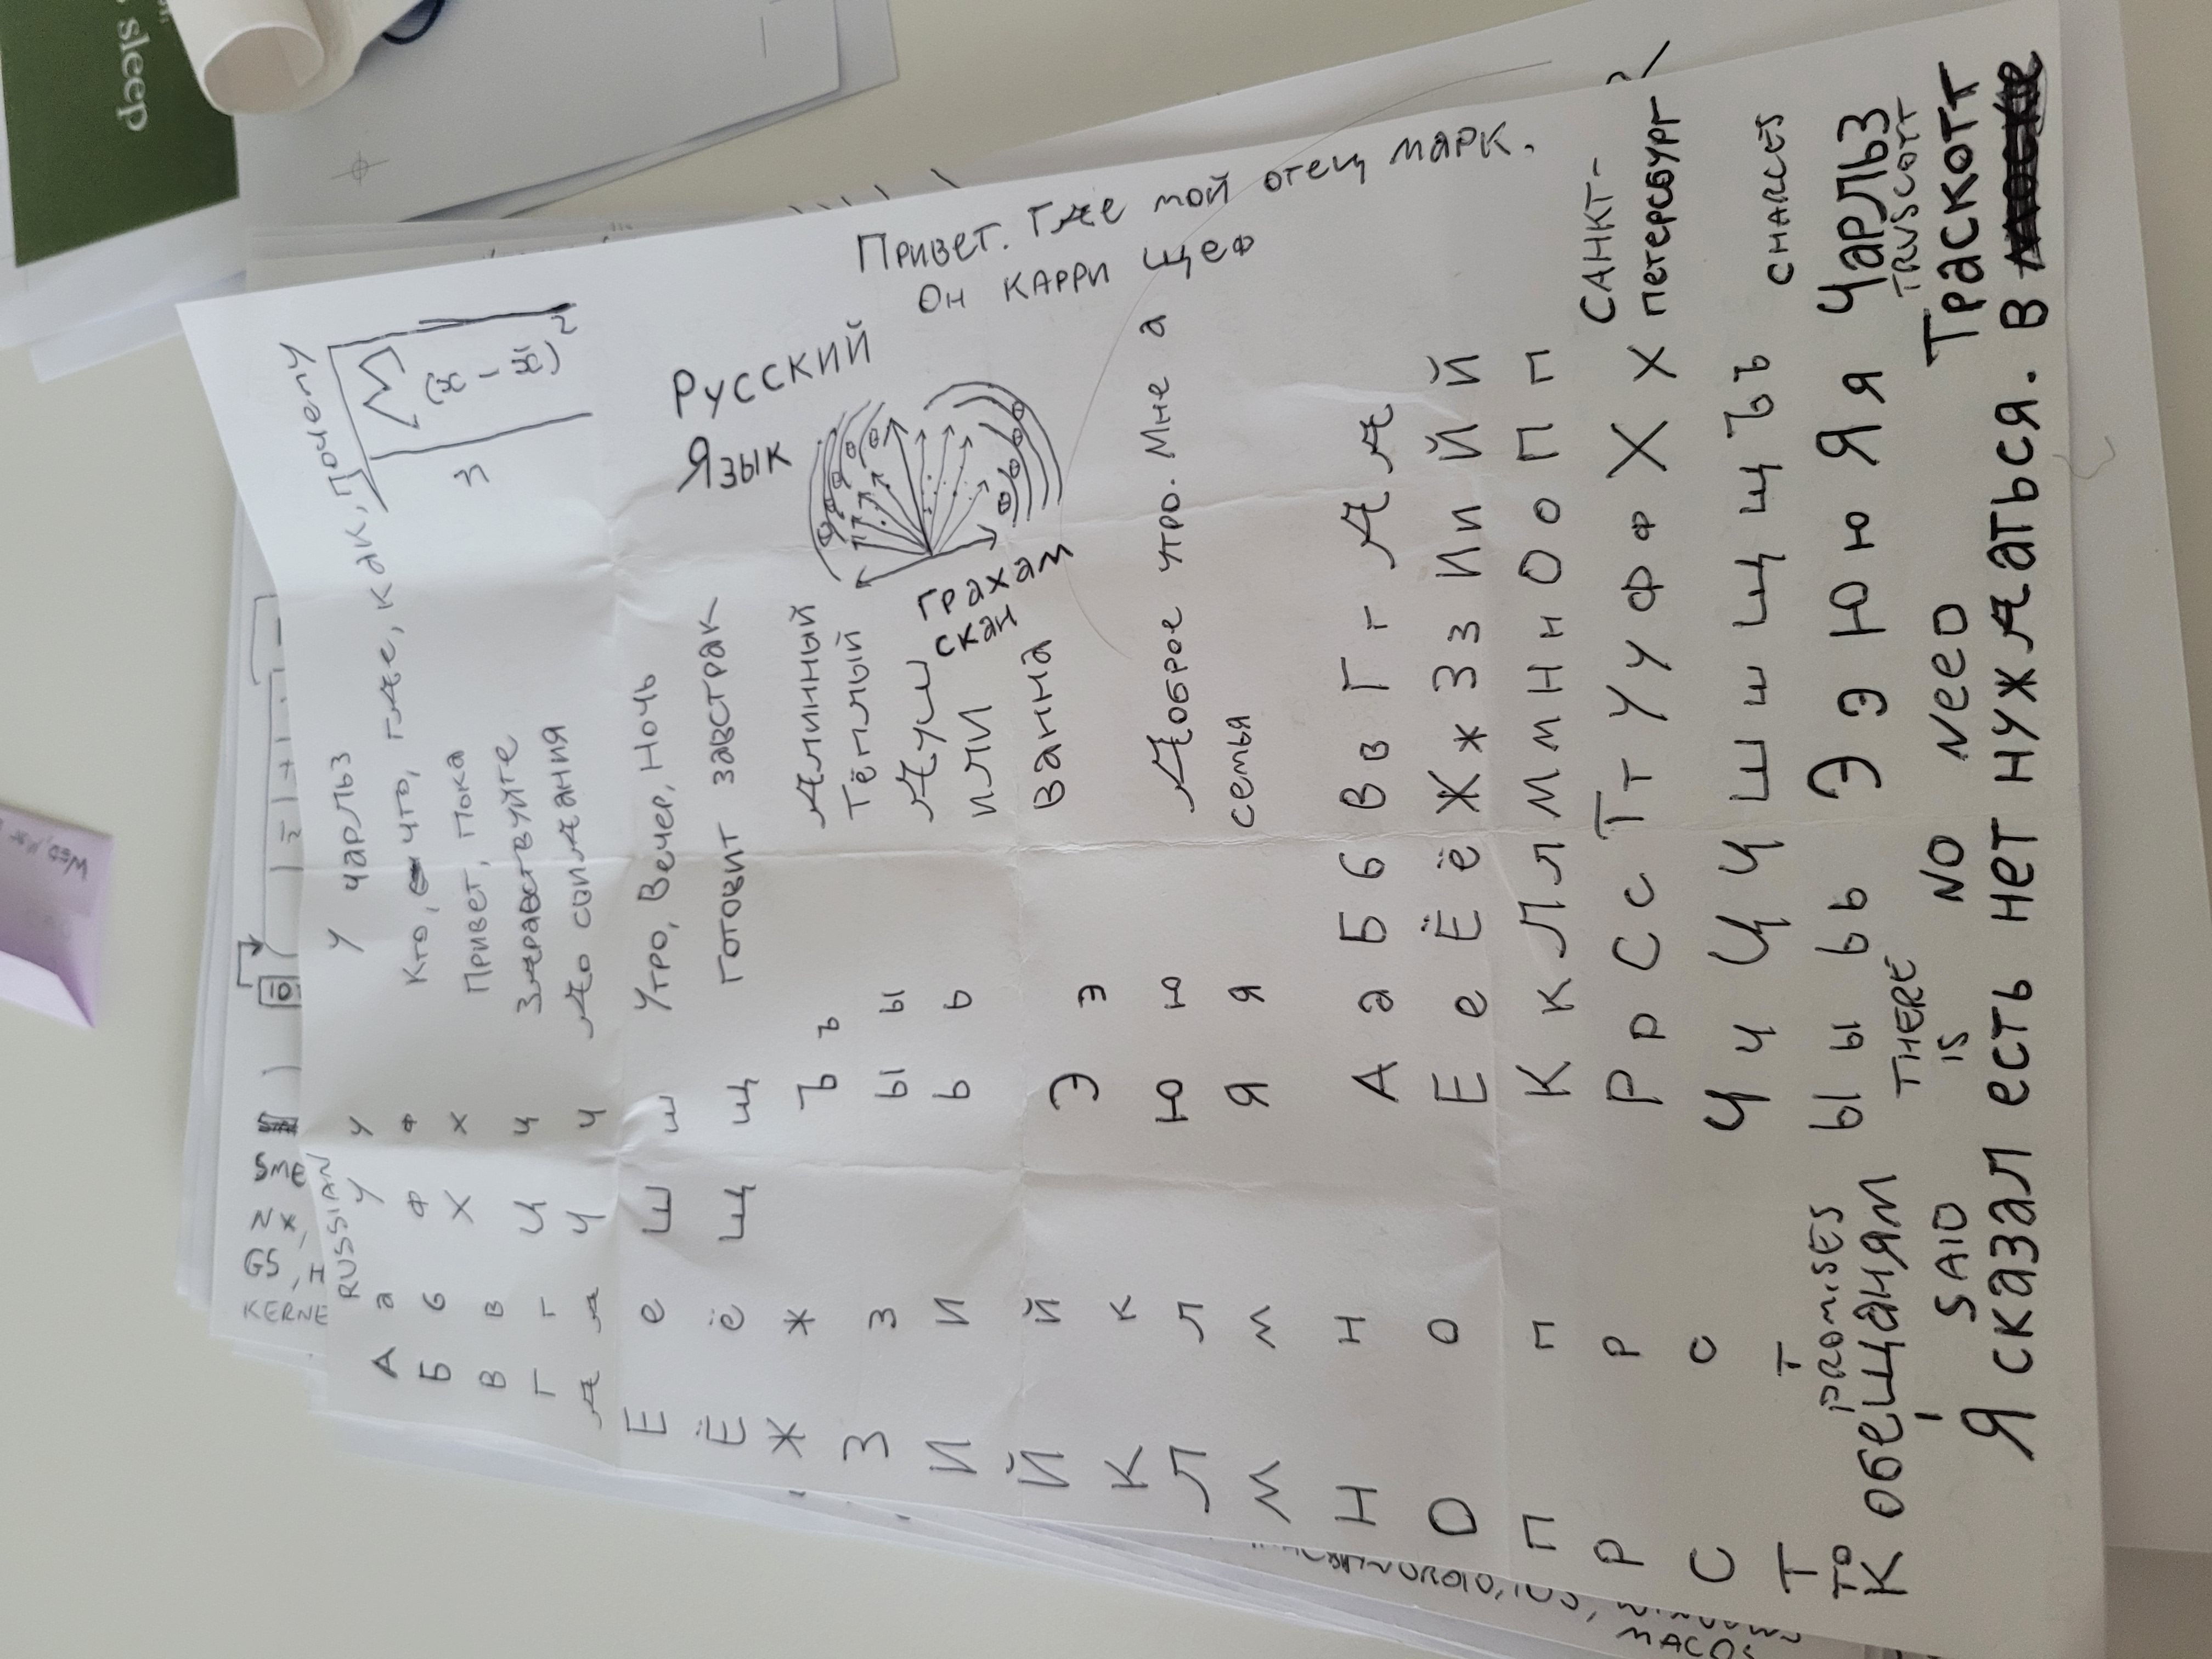 WED,
sleep
KERNE
GS, H
NX,
Sme
10
RUSSIAN
А а У у
Б б Ф ф
В в Х х
Г г Ц ц
Д д Ч ч
Е е Ш ш
Ё ё Щ щ
Ж ж Ъ ъ
З з Ы ы
И и Ь ь
Й й Э э
К к Ю ю
Л л Я я
М м
Н н
О о
П п
Р р
С с
Т т
У чарльз
Кто, что, где, как, почему
Привет, Пока
Здравствуйте
До свидания
Утро, Вечер, Ночь
готовит завстрак
Длинный
Тёплый
Душ
или
ванна
Доброе утро. Мне а
семья
Σ (x - x̄)²
n
русский
Язык
грахам
скан
Привет. Где мой отец марк.
Он карри щеф
А а Б б В в Г г Д д
Е е Ё ё Ж ж З з И и Й й
К к Л л М м Н н О о П п
Р р С с Т т У у Ф ф Х х
САНКТ-
петерсбург
Ч ч Ц ц Ш ш Щ щ Ъ ъ
Ы ы Ь ь Э э Ю ю Я я
CHARLES
Чарльз
TRUSCOTT
Траскотт
TO PROMISES
К обещаням
I SAID THERE IS NO NEED
Я сказал есть нет нуждаться. в